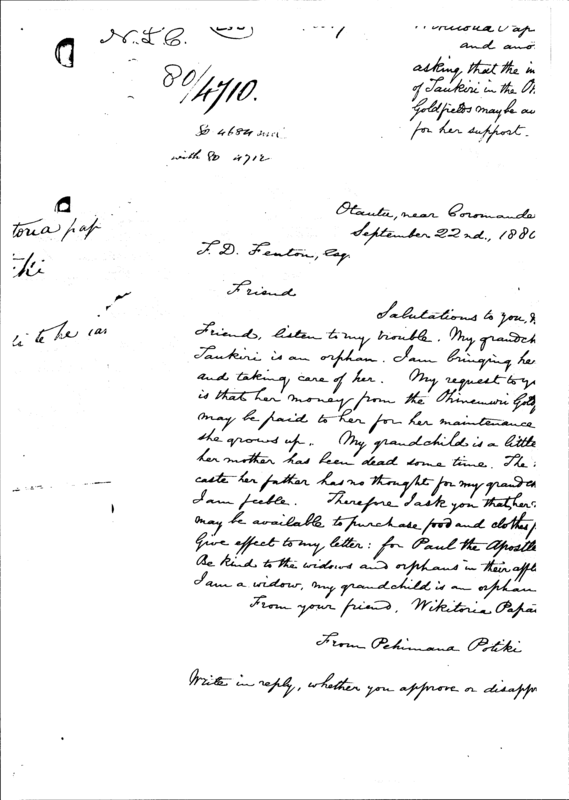 N.L.C.
80/4710.
80 4684
with 80 4712
and ano
asking that the in
of Taukiri in the Oh
Goldfields may be av
for her support.
Otautu, near Coromande
September 22nd., 1880
F. D. Fenton, Esq.
Friend
Salutations to you,
Friend, listen to my trouble. My grandch
Taukiri is an orphan. I am bringing he
and taking care of her. My request to yo
is that her money from the Ohinemuri Gol
may be paid to her for her maintenance
she grows up. My grandchild is a little
her mother has been dead some time. The
caste her father has no thought for my grandch
I am feeble. Therefore I ask you that her
may be available to purchase food and clothes
Give effect to my letter: for Paul the Apostle
Be kind to the widows and orphans in their affl
I am a widow, my grandchild is an orphan
From your friend, Wikitoria Papa
From Pehimana Potiki
Write in reply, whether you approve or disapp
toria pap
iki